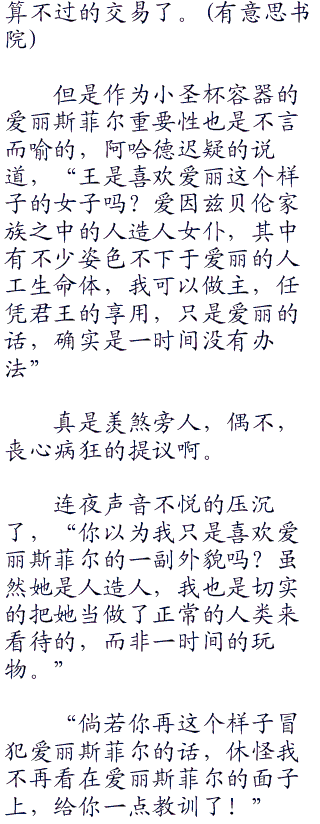 算不过的交易了。(有意思书
院)
但是作为小圣杯容器的
爱丽斯菲尔重要性也是不言
而喻的，阿哈德迟疑的说
道，“王是喜欢爱丽这个样
子的女子吗？爱因兹贝伦家
族之中的人造人女仆，其中
有不少姿色不下于爱丽的人
工生命体，我可以做主，任
凭君王的享用，只是爱丽的
话，确实是一时间没有办
法”
真是羡煞旁人，偶不，
丧心病狂的提议啊。
连夜声音不悦的压沉
了，“你以为我只是喜欢爱
丽斯菲尔的一副外貌吗？虽
然她是人造人，我也是切实
的把她当做了正常的人类来
看待的，而非一时间的玩
物。”
“倘若你再这个样子冒
犯爱丽斯菲尔的话，休怪我
不再看在爱丽斯菲尔的面子
上，给你一点教训了！”